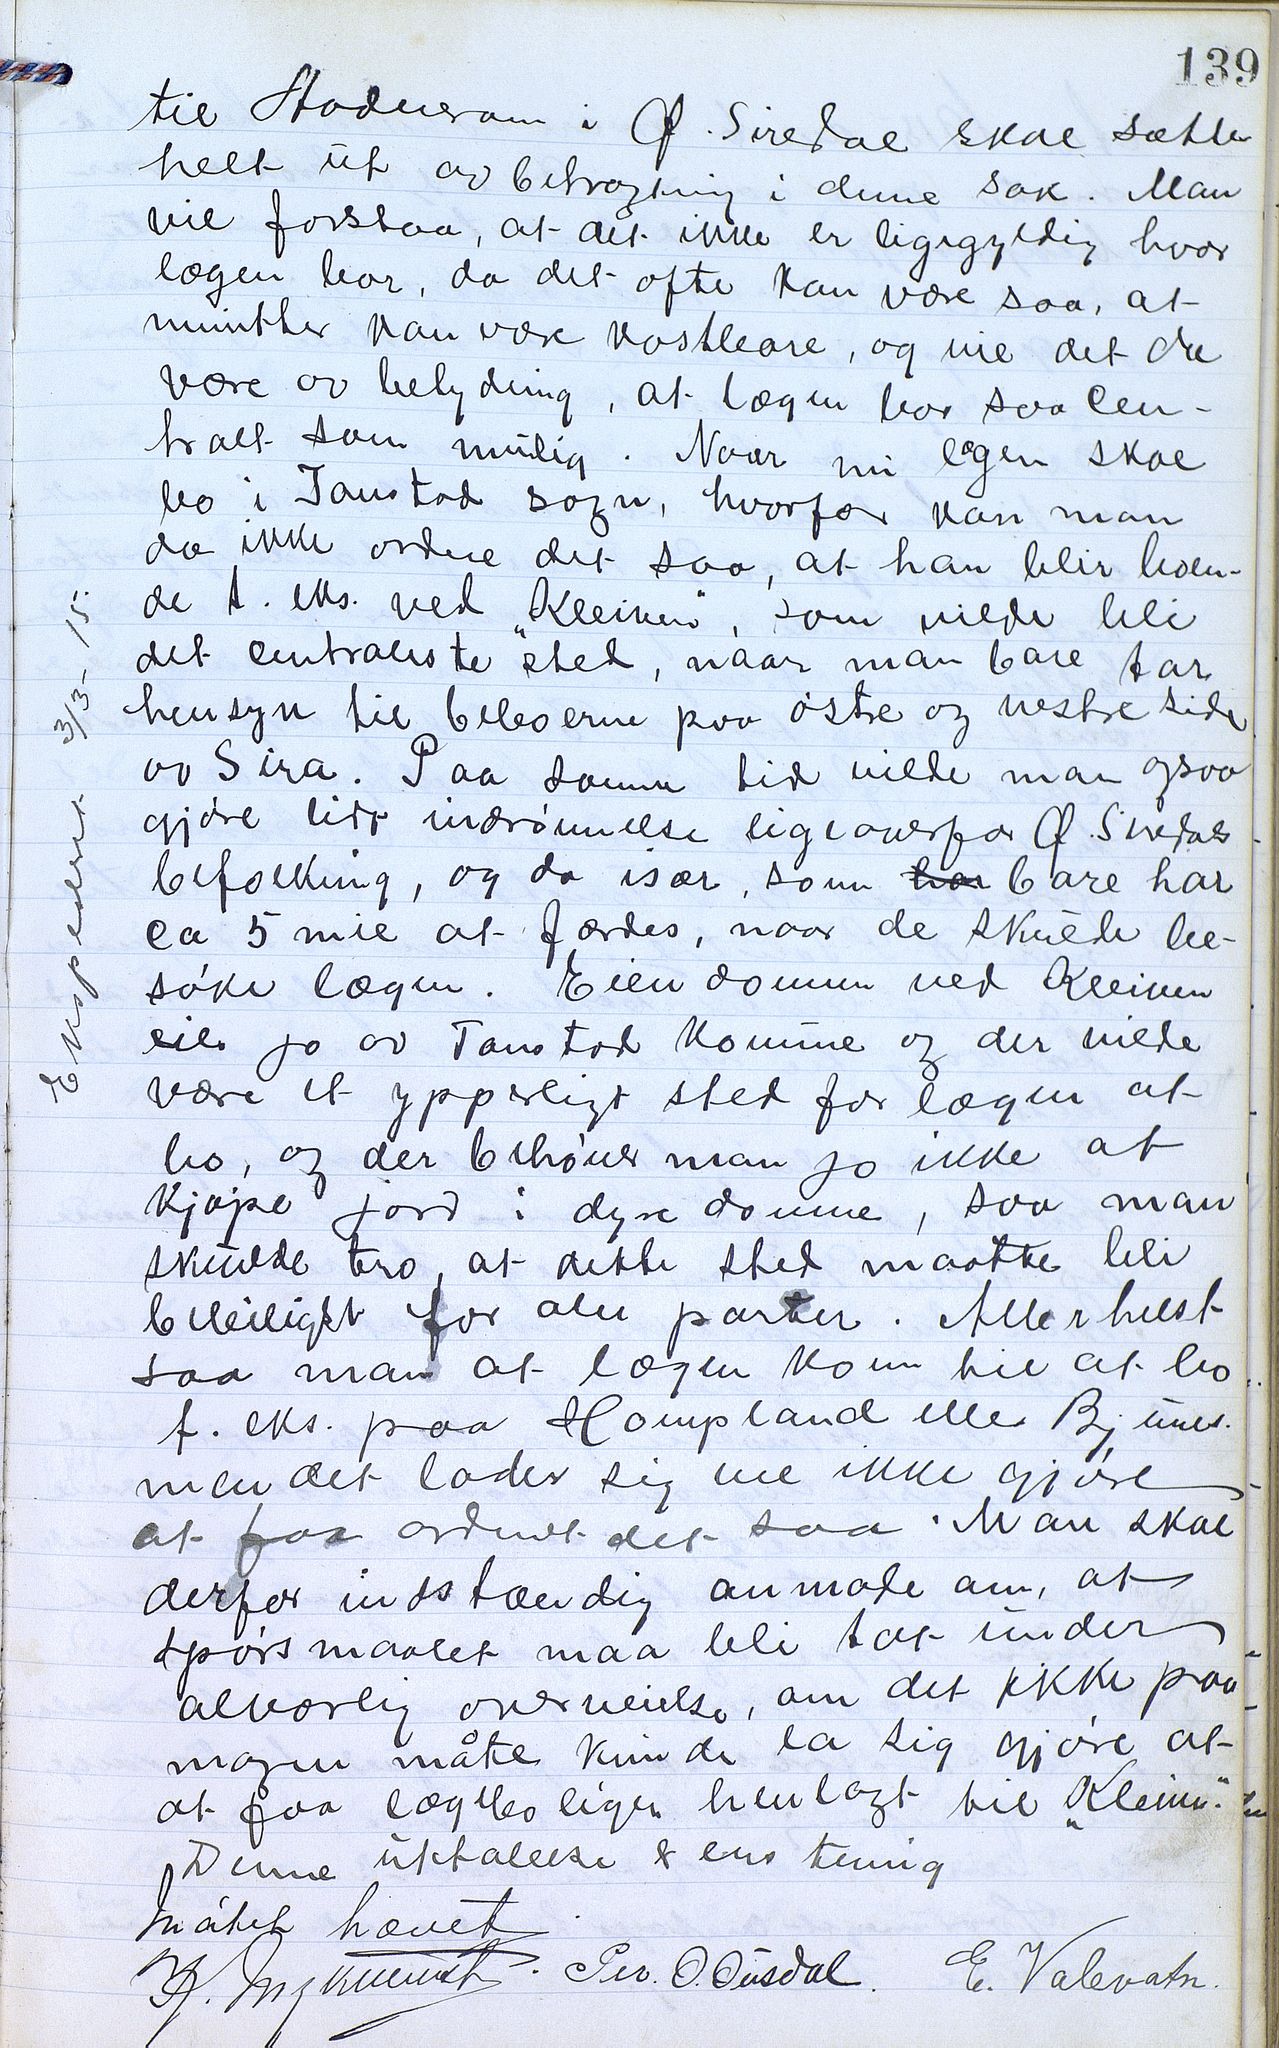 139
til Hovedveram i Ø. Siredal skal sættes
helt ut av betragtning i denne sak. Man
vil forstaa, at det ikke er ligegyldig hvor
lægen bor, da det ofte kan være saa, at
minutter kan være kostbare, og vil det da
være av betydning, at lægen bor saa cen-
tralt som mulig. Naar nu lægen skal
bo i Tonstad sogn, hvorfor kan man
da ikke ordne det saa, at han blir boen-
de t. eks. ved „Kleiven", som vilde bli
det centraleste sted, naar man bare tar
hensyn til beboerne paa østre og vestre side
av Sira. Paa samme tid vilde man ogsaa
gjøre lidt indrømmelse ligeoverfor Ø. Siredals
befolkning, og da især, som har bare har
ca 5 mil at færdes, naar de skulde be-
søke lægen. Eiendommen ved Kleiven
eies jo av Tonstad komune og der vilde
være et ypperligt sted for lægen at
bo, og der behøver man jo ikke at
kjøpe jord i dyre domme, saa man
skulde tro, at dette sted maatte bli
beleiligt for alle parter. Aller helst
saa man at lægen kom til at bo
f. eks. paa Hompland eller Bjunes.
men det lader sig vel ikke gjøre
at faa ordnet det saa. Man skal
derfor indstændig anmode om, at
spørsmaalet maa bli tat under
alvorlig overveielse, om det ikke paa
nogen måte kunde la sig gjøre at
at faa lægeboligen henlagt til „Kleiven".
Denne uttalelse er enstemig
Møtet hævet
Per. O. Ousdal. E. Valevatn.
Ekspedert 3/3-15.